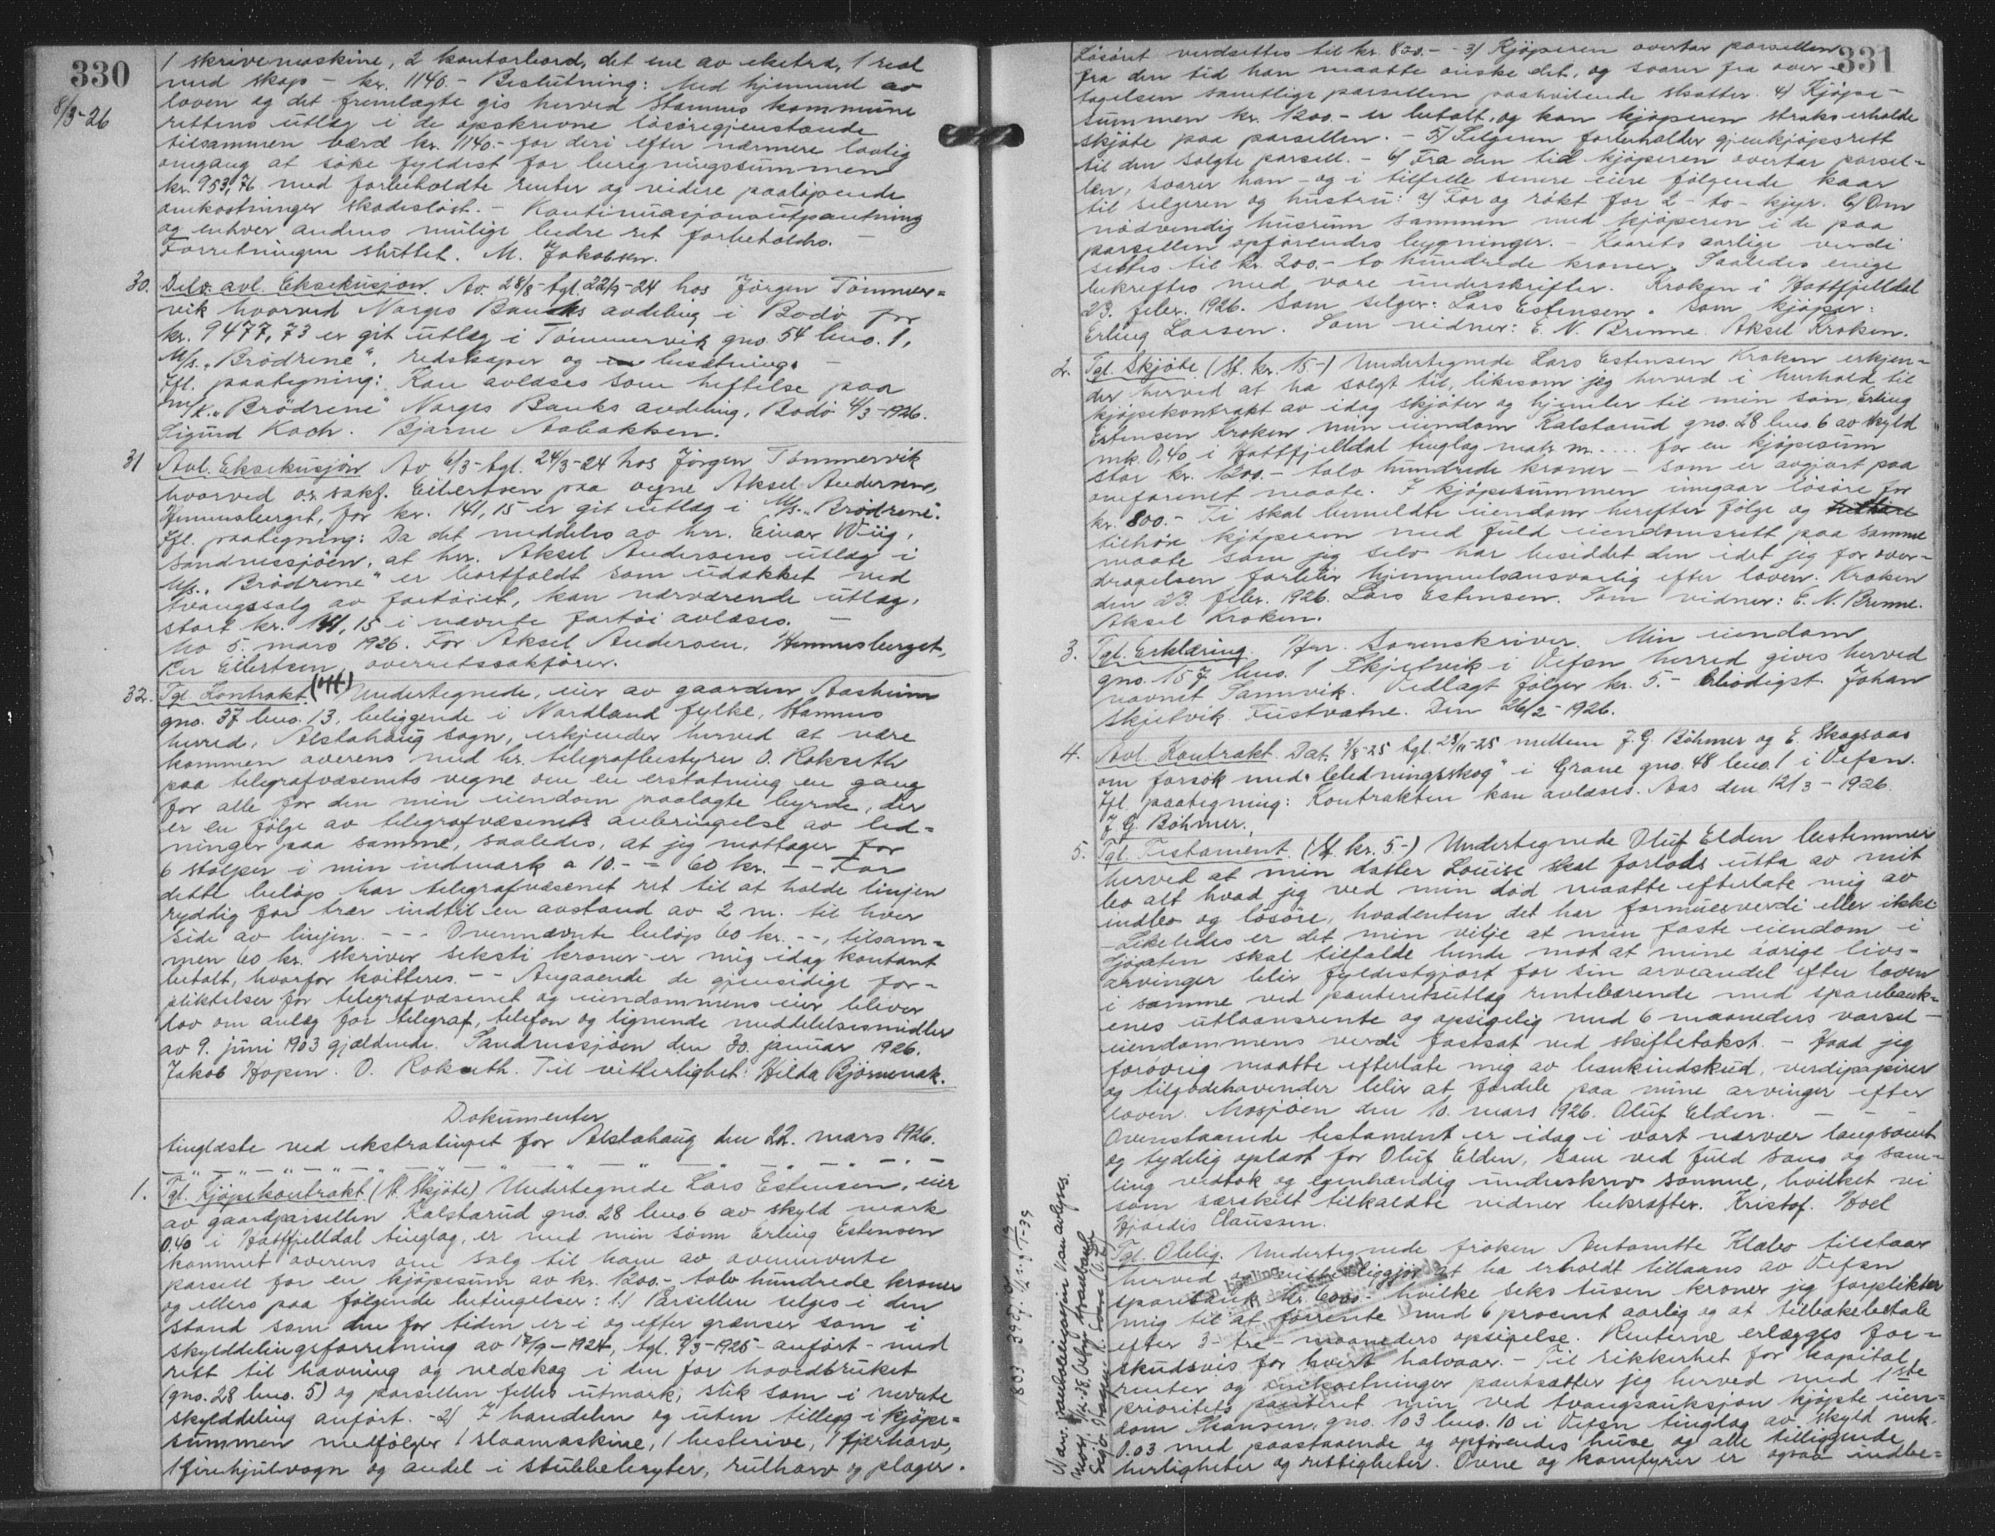 330
8/3-26
1 skrivemaskine, 2 kontorbord, det ene av eketræ, 1 reol
med skap - kr. 1140.- Beslutning: Med hjemmel av
loven og det fremlagte gis herved Stamnes kommune
rettens utlæg i de opskrevne løsøregjenstande
tilsammen værd kr. 1140.- for deri efter nærmere lovlig
omgang at søke fyldest for beregningssummen
kr. 953,76 med forbeholdte renter og videre paaløpende
omkostninger skadesløst. - Kontinuasjonsutpantning
og enhver anden mulige bedre ret forbeholdes. -
Forretningen sluttet. M. Jakobsen.
30. Delv. avl. Eksekusjon. Av 28/8- tgl. 22/9-24 hos Jørgen Tømmer=
vik hvorved Norges Banks avdeling i Bodø for
kr. 9477,73 er git utlæg i Tømmervik gno. 54 bno. 1,
M/s. "Brødrene", redskaper og besetning. -
Ifl. paategning: Kan avlæses som heftelse paa
m/k. "Brødrene" Norges Banks avdeling, Bodø 4/3-1926.
Sigurd Koch. Bjarne Aabakken.
31 Avl. Eksekusjon Av 6/3- tgl. 24/3-24 hos Jørgen Tømmervik
hvorved o.r.sakf. Eilertsen paa vegne Aksel Andersen,
Hemnesberget, for kr. 141,15 er git utlæg i M/s. "Brødrene".
Ifl. paategning: Da det meddeles av hr. Einar Wiig,
Sandnessjøen, at hr. Aksel Andersens utlæg i
M/s. "Brødrene" er bortfaldt som udækket ved
tvangssalg av fartøiet, kan nærværende utlæg,
stort kr. 141,15 i nævnte fartøi avlæses. -
Mo 5. mars 1926. For Aksel Andersen, Hemnesberget,
Per Eilertsen, overretssakfører.
32. Tgl. Kontrakt. Undertegnede, eier av gaarden Aasheim
gno. 37 bno. 13, beliggende i Nordland fylke, Stamnes
herred, Alstahaug sogn, erkjender herved at være
kommen overens med hr. telegrafbestyrer O. Rokseth
paa telegrafvæsenets vegne om en erstatning en gang
for alle for den min eiendom paalagte byrde, der
er en følge av telegrafvæsenets anbringelse av led=
ninger paa samme, saaledes, at jeg mottager for
6 stolper i min indmark a 10.- - 60 kr. - - For
dette beløp har telegrafvæsenet ret til at holde linjen
ryddig for trær indtil en avstand av 2 m. til hver
side av linjen. - - - Ovennævnte beløp 60 kr. - -, tilsam=
men 60 kr. skriver seksti kroner er mig idag kontant
betalt, hvorfor kvitteres. - - Angaaende de gjensidige for=
pliktelser for telegrafvæsenet og eiendommens eier bliver
lov om anlæg for telegraf, telefon og lignende meddelelsesmidler
av 9. juni 1903 gjældende. Sandnessjøen den 30. januar 1926.
Jakob Hopen. O. Rokseth. Til vitterlighet: Hilda Bjørnevak.
Dokumenter
tinglæste ved ekstratinget for Alstahaug den 22. mars 1926.
1. Tgl. Kjøpekontrakt. (st. Skjøte) Undertegnede Lars Estensen, eier
av gaardparsellen Kalstarud gno. 28 bno. 6 av skyld mark
0.40 i Hattfjelldal tinglag, er med min sønn Erling Estensen
kommet overens om salg til ham av ovennevnte
parsell for en kjøpesum av kr. 1200.- tolv hundrede kroner
og ellers paa følgende betingelser: 1.) Parsellen selges i den
stand som den for tiden er i og efter grænser som i
skylddelingsforretning av 17/9-1924, tgl. 9/3-1925- anført - med
rett til havning og vedskog i den for hovedbruket
(gno. 28 bno. 5) og parsellen felles utmark, slik som i nevnte
skylddeling anført. - 2) I handelen og uten tillegg i kjøpe=
summen medfølger 1 slaamaskine, 1 hesterive, 1 fjærharv,
1 firehjulvogn og andel i stubbebryter, rulharv og ploger.
331
Løsøret verdsettes til kr. 800.- - 3) Kjøperen overtar parsellen
fra den tid han maatte ønske det, og svarer fra over=
tagelsen samtlige parsellen paahvilende skatter. 4) Kjøpe=
summen kr. 1200.- er betalt, og kan kjøperen straks erholde
skjøte paa parsellen. - 5) Selgeren forbeholder gjenkjøpsrett
til den solgte parsell. - 6) Fra den tid kjøperen overtar parsel=
len, svarer han - og i tilfelle senere eiere følgende kaar
til selgeren og hustru: a) For og røkt for 2 - to - kjyr. b) Om
nødvendig husrum sammen med kjøperen i de paa
parsellen opførendes bygninger. - Kaarets aarlige verdi
settes til kr. 200.- to hundrede kroner. Saaledes enige
bekreftes med vore underskrifter. Kroken i Hattfjelldal
23. febr. 1926. Som selger: Lars Estensen. Som kjøper:
Erling Larsen. Som vidner: E. N. Brenne. Aksel Kroken.
2. Tgl. Skjøte (St. kr. 15-) Undertegnede Lars Estensen Kroken erkjen=
der herved at ha solgt til, likesom jeg herved i henhold til
kjøpekontrakt av idag skjøter og hjemler til min søn, Erling
Estensen Kroken min eiendom Kalstarud gno. 28 bno. 6 av skyld
mk. 0,40 i Hattfjelldal tinglag matr. nr. .... for en kjøpesum
stor kr. 1200.- tolv hundrede kroner - som er avgjort paa
omforenet maate. I kjøpesummen inngaar løsøre for
kr. 800.- Ti skal bemeldte eiendom herefter følge og
tilhøre kjøperen med fuld eiendomsrett paa samme
maate som jeg selv har besiddet den idet jeg for over=
dragelsen forblir hjemmelsansvarlig efter loven. Kroken
den 23. febr. 1926. Lars Estensen. Som vidner: E. N. Brenne.
Aksel Kroken.
3. Tgl. Erklæring. Herr Sorenskriver. Min eiendom
gno. 157 bno. 1 Skjelvik i Vefsn herred gives herved
navnet Tannvik. Vedlagt følger kr. 5.- Ærbødigst Johan
Skjelvik. Fustvatne. Den 26/2-1926.
4. Avl. Kontrakt. Dat. 3/8-25 tgl. 23/11-25 mellem J. G. Bøhmer og E. Skogsaas
om forsøk med "bledningsskog" i Grane gno. 48 bno. 1 i Vefsn.
Ifl. paategning: Kontrakten kan avlæses. Aas den 12/3-1926.
J. G. Bøhmer.
5. Tgl. Testament (St. kr. 5-) Undertegnede Oluf Elden bestemmer
herved at min datter Louise skal forlods utta av mit
bo alt hvad jeg ved min død maatte efterlate mig av
indbo og løsøre, hvadenten det har formuesverdi eller ikke
- Likeledes er det min vilje at min faste eiendom i
skal tilfalde hende mot at mine øvrige livs=
arvinger blir fyldestgjort for sin arveandel efter loven
i samme ved panteretsutlæg rentebærende med sparebank=
enes utlaansrente og opsigelig med 6 maaneders varsel -
eiendommens verdi fastsat ved skiftetakst. - Hvad jeg
forøvrig maatte efterlate mig av bankindskud, verdipapirer
og tilgodehavender blir at fordele paa mine arvinger efter
loven. Mosjøen den 10. mars 1926. Oluf Elden. - - -
Ovenstaaende testament er idag i vort nærvær langsomt
og tydelig oplæst for Oluf Elden, som ved fuld sans og sam=
ling vedtok og egenhændig underskrev samme, hvilket vi
som særskilt tilkaldte vidner bekræfter. Kristof. Hoel
Hjørdis Claussen.
Tgl. Oblig. Undertegnede frøken Antonette Klæbo tilstaar
herved og vitterliggjør at ha erholdt tillaans av Vefsn
sparebank kr. 6000.- hvilke seks tusen kroner jeg forplikter
mig til at forrente med 6 procent aarlig og at tilbakebetale
efter 3 - tre - maaneders opsigelse. Renterne erlægges for=
skudsvis for hvert halvaar. - Til sikkerhet for kapital
renter og omkostninger pantsætter jeg herved med 1ste
prioritets panteret min ved tvangsauksjon kjøpte eien=
dom Skansen, gno. 103 bno. 10 i Vefsn tinglag av skyld mk.
0.03 med paastaaende og opførendes huse og alle tilliggende
herligheter og rettigheter. Ovne og komfyrer er ogsaa indbe=